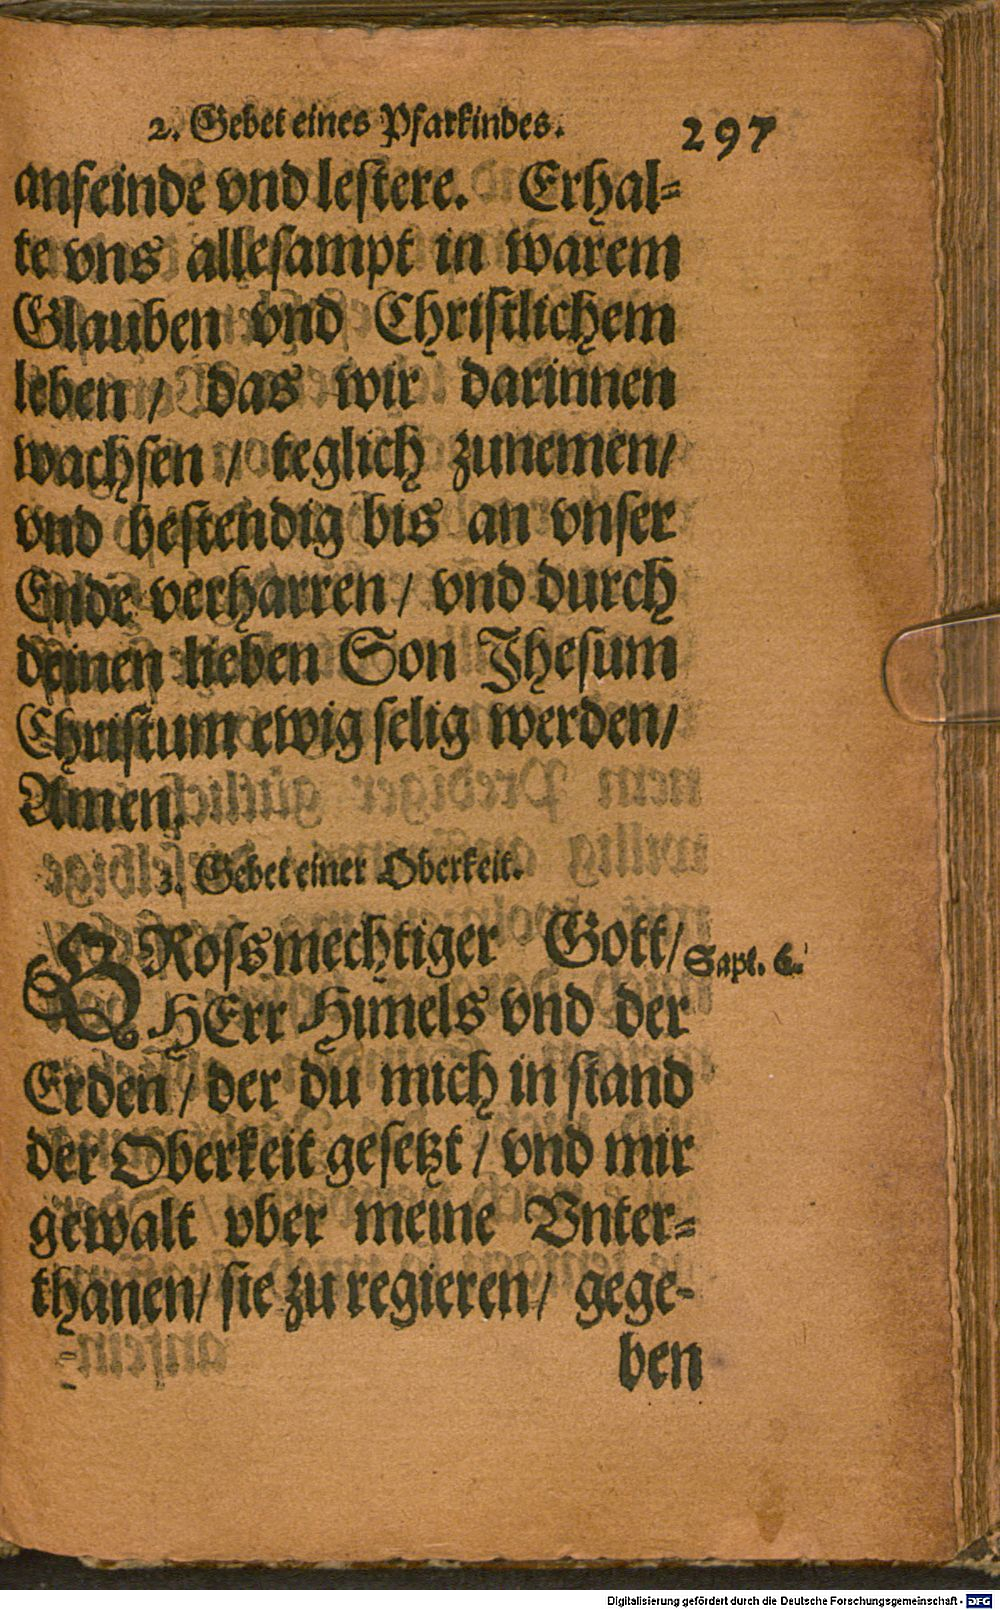 2. Gebet eines Pfarkindes. 297
anfeinde vnd lestere. Erhal-
te vns allesampt in warem
Glauben vnd Christlichem
leben / das wir darinnen
wachsen / teglich zunemen /
vnd bestendig bis an vnser
Ende verharren / vnd durch
deinen lieben Son Jhesum
Christum ewig selig werden /
Amen.
3. Gebet einer Oberkeit.
GRossmechtiger Gott / Sapi. 6.
HErr Himels vnd der
Erden / der du mich in stand
der Oberkeit gesetzt / vnd mir
gewalt vber meine Vnter-
thanen / sie zu regieren / gege-
ben
Digitalisierung gefördert durch die Deutsche Forschungsgemeinschaft - DFG